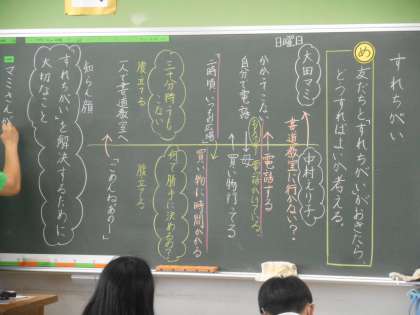 すれちがい
め
友だちと「すれちがい」がおきたら、
どうすればよいか考える。
日曜日
大田マミ
中村えり子
書道教室に行かない？
電話する
かかってこない
自分で電話
母
買い物行ってる
二時頃いつもの広場
買い物に時間かかる
三十分待っても
こない
腹立てる
何で勝手に決めるの？
腹立てる
一人で書道教室へ
「ごめんねあのー」
知らん顔
「すれちがい」を解決するために
大切なこと
マミさんが